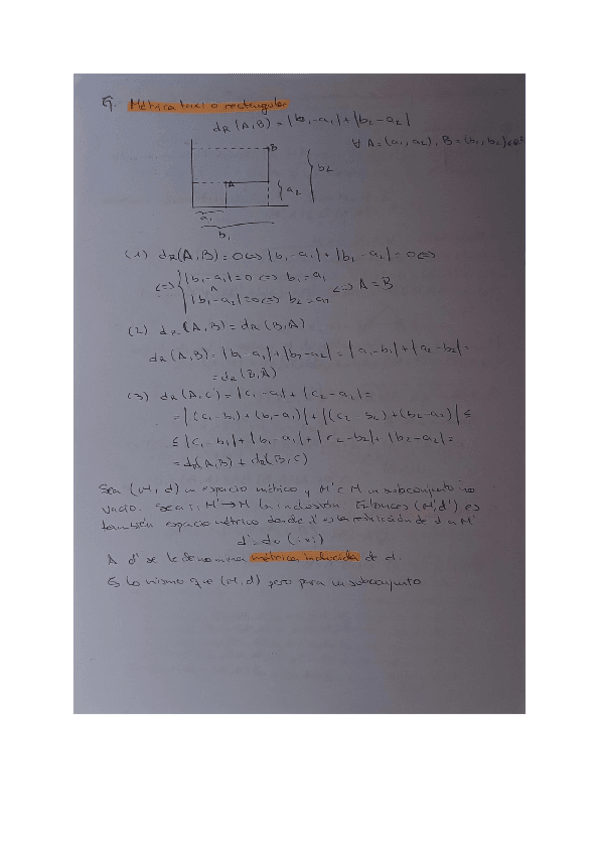 5. Métrica taxi o rectangular
dR(A,B) = |b₁-a₁|+|b₂-a₂|
∀ A=(a₁,a₂), B=(b₁,b₂)∈ℝ²
B
A
a₂
b₂
a₁
b₁
(1) dR(A,B)=0<=>|b₁-a₁|+|b₂-a₂|=0<=>
<=> { |b₁-a₁|=0 <=> b₁=a₁
∧
|b₁-a₂|=0<=> b₂=a₂
<=> A=B
(2) dR(A,B)=dR(B,A)
dR(A,B)=|b₁-a₁|+|b₂-a₂|=|a₁-b₁|+|a₂-b₂|=
=dR(B,A)
(3) dR(A,C)=|c₁-a₁|+|c₂-a₂|=
=|(c₁-b₁)+(b₁-a₁)|+|(c₂-b₂)+(b₂-a₂)|≤
≤|c₁-b₁|+|b₁-a₁|+|c₂-b₂|+|b₂-a₂|=
=dR(A,B)+dR(B,C)
Sea (M,d) un espacio métrico y M'⊂M un subconjunto no
vacío. Sea i: M'→M la inclusión. Entonces (M',d') es
también espacio métrico donde d' es la restricción de d a M'
d'=d∘(i×i)
A d' se le denomina métrica inducida de d.
Es lo mismo que (M,d) pero para un subconjunto